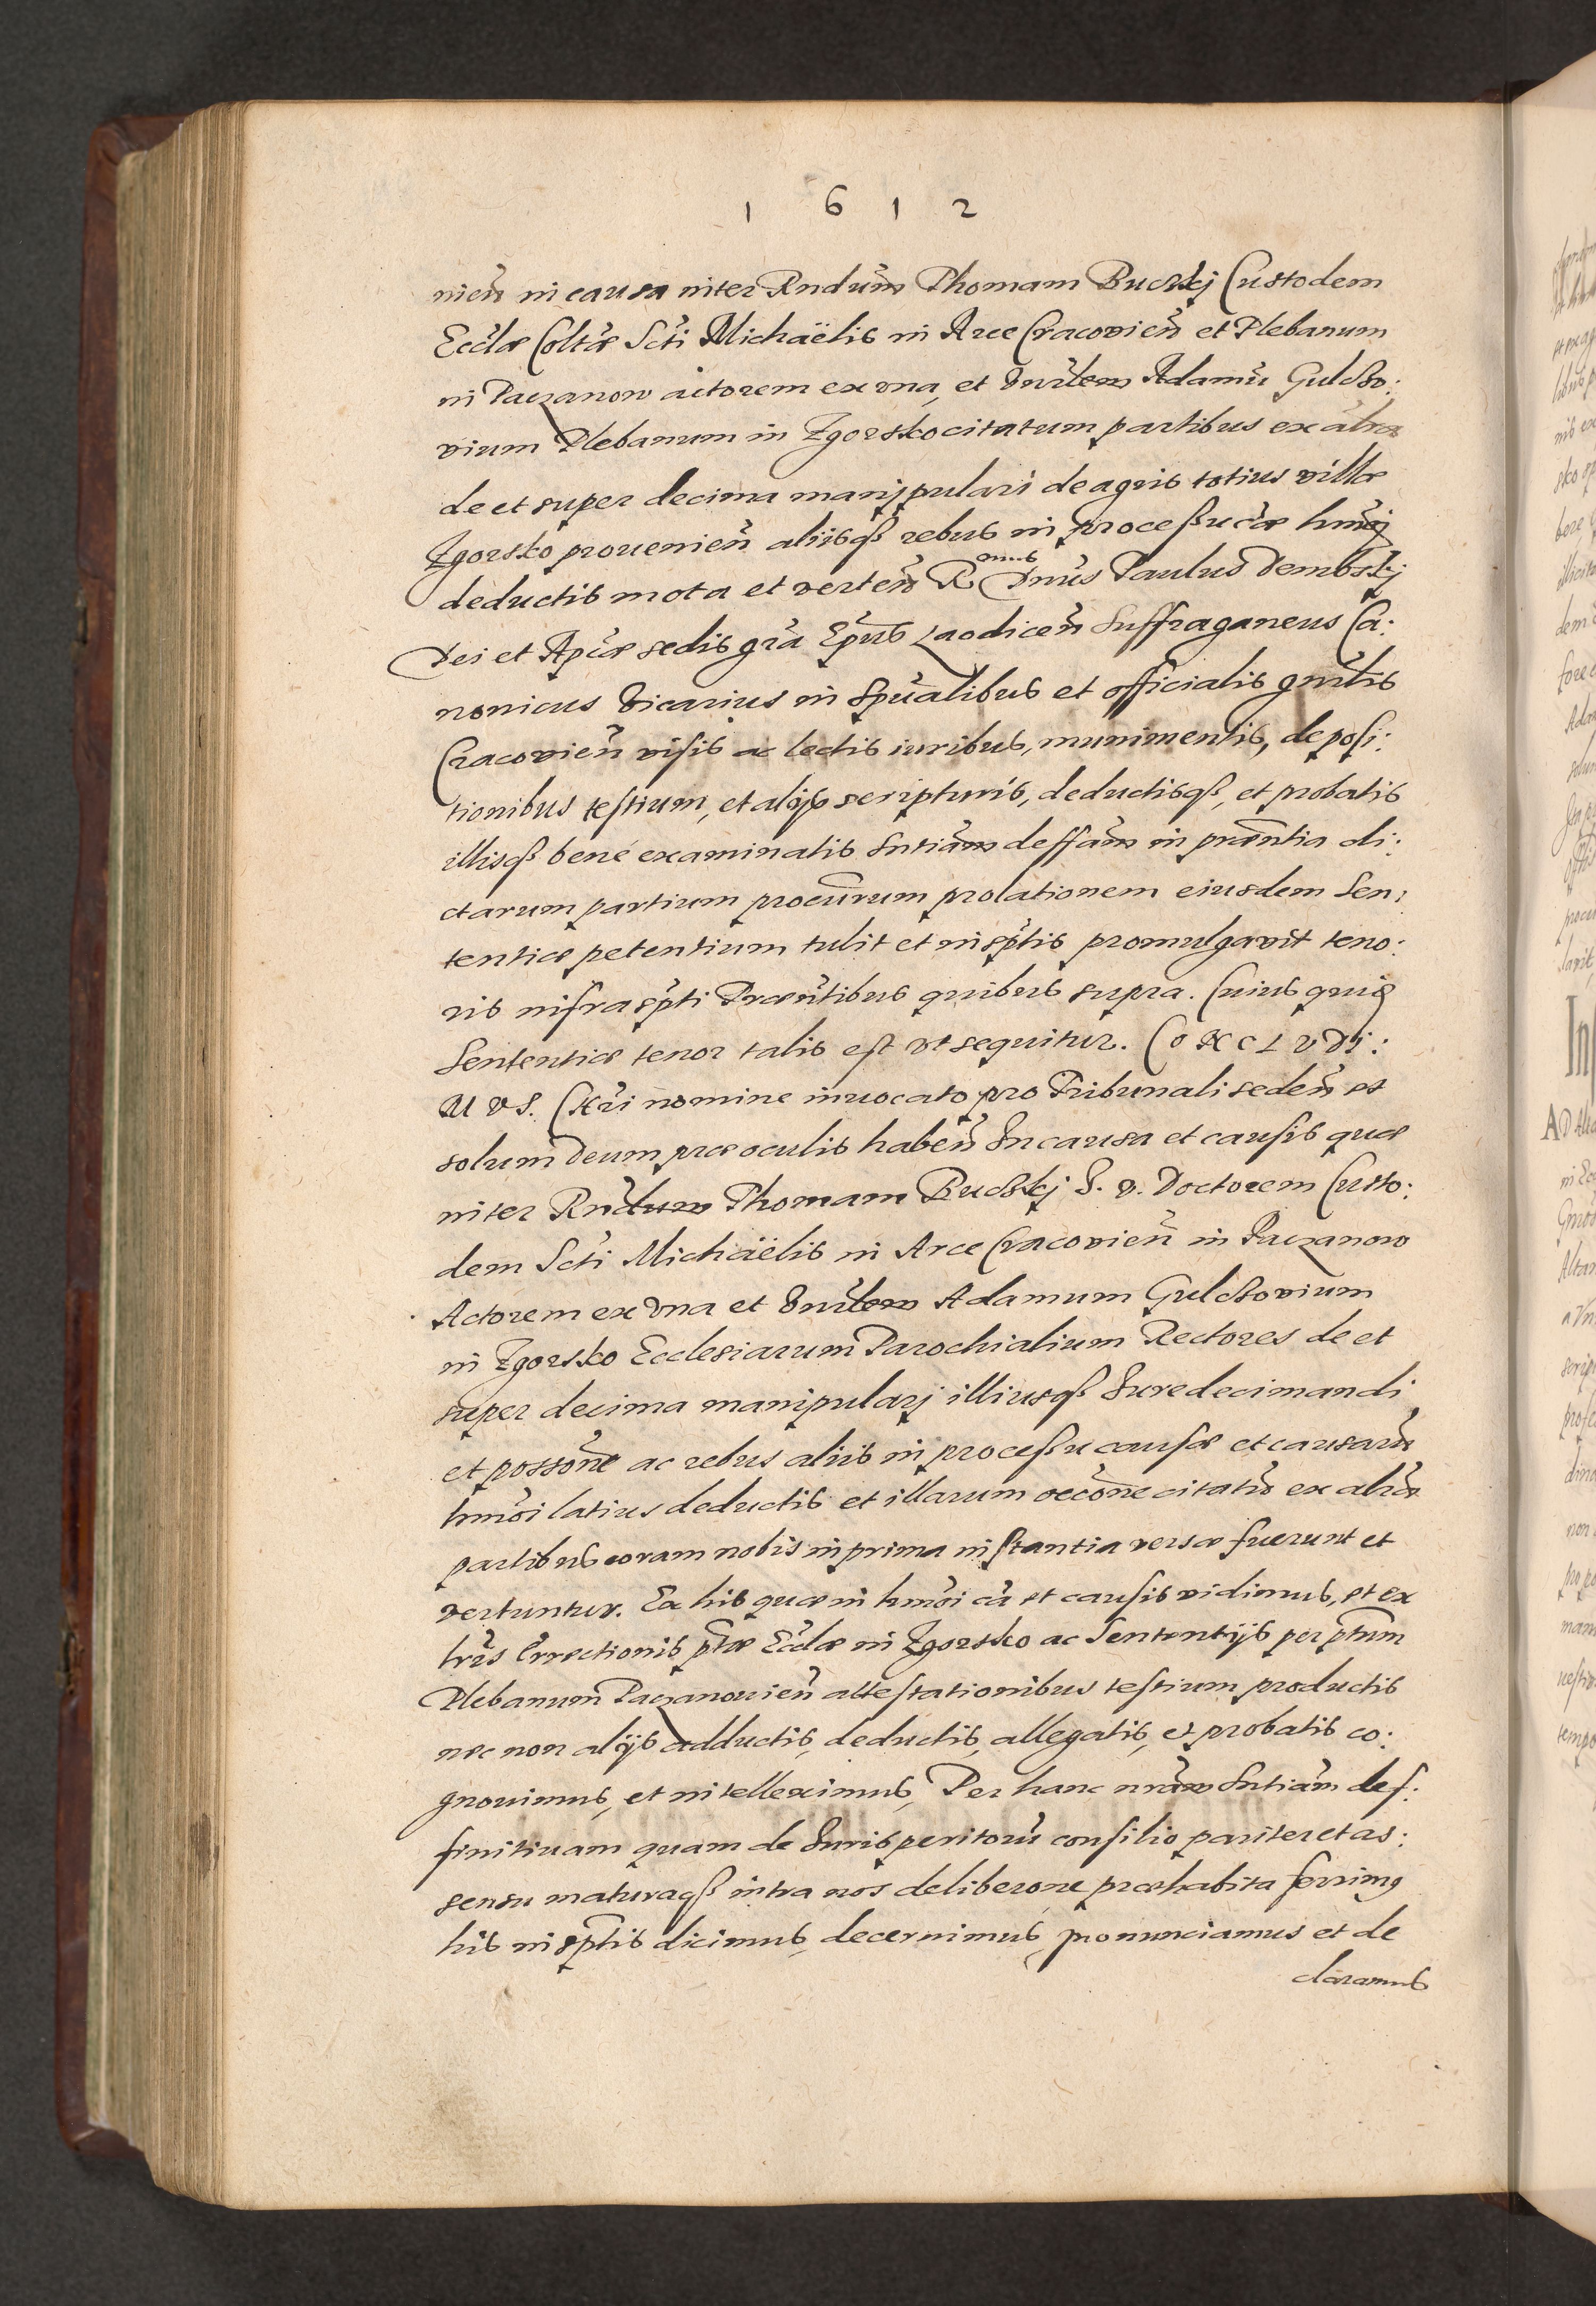 1 6 1 2
nieñ in causa inter Rndum̃ Thomam Bucskj Custodem
Eccl̃æ Coltæ̃ Scti Michäelis in Arce Cracovieñ et Plebanum
in Paczanow actorem ex una, et Vnrl̃em Adamũ Gulcho:
vium Plebanum in Zgorsko citatum partibus ex altr̃a
de et super decima manipulari de agris totius villæ
Zgorsko provenieñ aliisqß rebus in proceßu cæ̃ hmõj
deductis mota et verteñ Rmus Dnũs Paulus Dembskj
Dei et Apl̃icæ sedis grã Epũs Laodiceñ Suffraganeus Ca:
nonicus Vicarius in Spũalibus et officialis gnrl̃is
Cracovieñ visis ac lectis iuribus, munimentis, deposi:
tionibus testium, et alijs scripturis, deductisqß, et probatis
illisqß bené examinatis Sntiãm deffãm in præñtia di:
ctarum partium procũrum prolationem eiusdem Sen:
tentiæ petentium tulit et in sp̃tis promulgavit teno:
ris infrasp̃ti Præsñtibus quibus supra. Cuius quid
Sententiæ tenor talis est ut sequitur. CONCLUDI:
MUS. Chri nomine invocato pro Tribunali sedeñ et
solum Deum præ oculis habeñ In causa et causis quæ
inter Rndum̃ Thomam Bucskj I. V. Doctorem Custo:
dem Scti Michäelis in Arce Cracovieñ in Paczanow
Actorem ex Vna et Vnrl̃em Adamum Gulchovium
in Zgorsko Ecclesiarum Parochialium Rectores de et
super decima manipularj illiusqß Iure decimandi
et possõne ac rebus aliis in proceßu causæ et causarũ
hmõi latius deductis et illarum occõne citatũ ex altr̃a
partibus coram nobis in prima instantia versæ fuerunt et
vertuntur. Ex his quæ in hmõi cã et causis vidimus, et ex
lrĩs Errectionis p̃tæ Eccl̃æ in Zgorsko ac Sententijs per p̃tum
Plebanum Paczanovieñ attestationibus testium productis
nec non alijs adductis, deductis, allegatis, et probatis co:
gnovimus, et intelleximus, Per hanc nrãm Sntiãm def:
finitivam quam de Iurisperitorũ consilio pariter et as:
sensu maturaqß intra nos deliberõne præhabita ferimus
his in sp̃tis dicimus, decernimus, pronunciamus et de
claramus